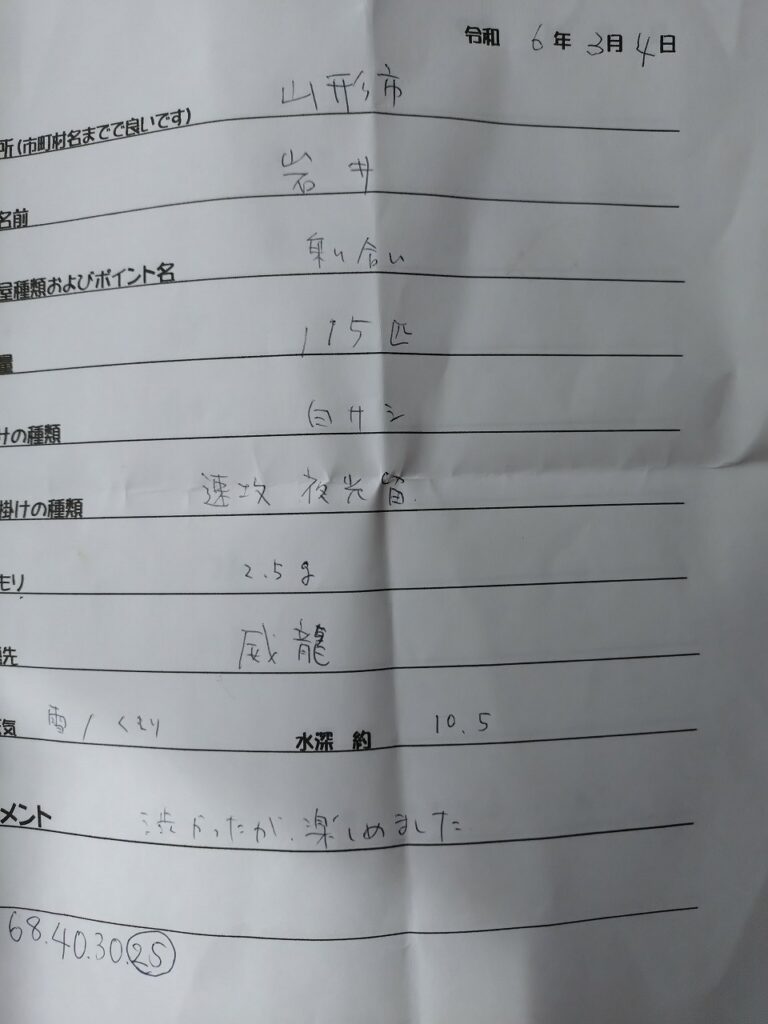 令和 6年 3月 4日
山形市
所(市町村名までで良いです)
岩井
名前
乗り合い
屋種類およびポイント名
115匹
量
白サシ
けの種類
速攻 夜光留
掛けの種類
2.5g
モリ
威龍
先
気 雪/くもり 水深 約 10.5
メント 渋かったが、楽しめました
68.40.30.25